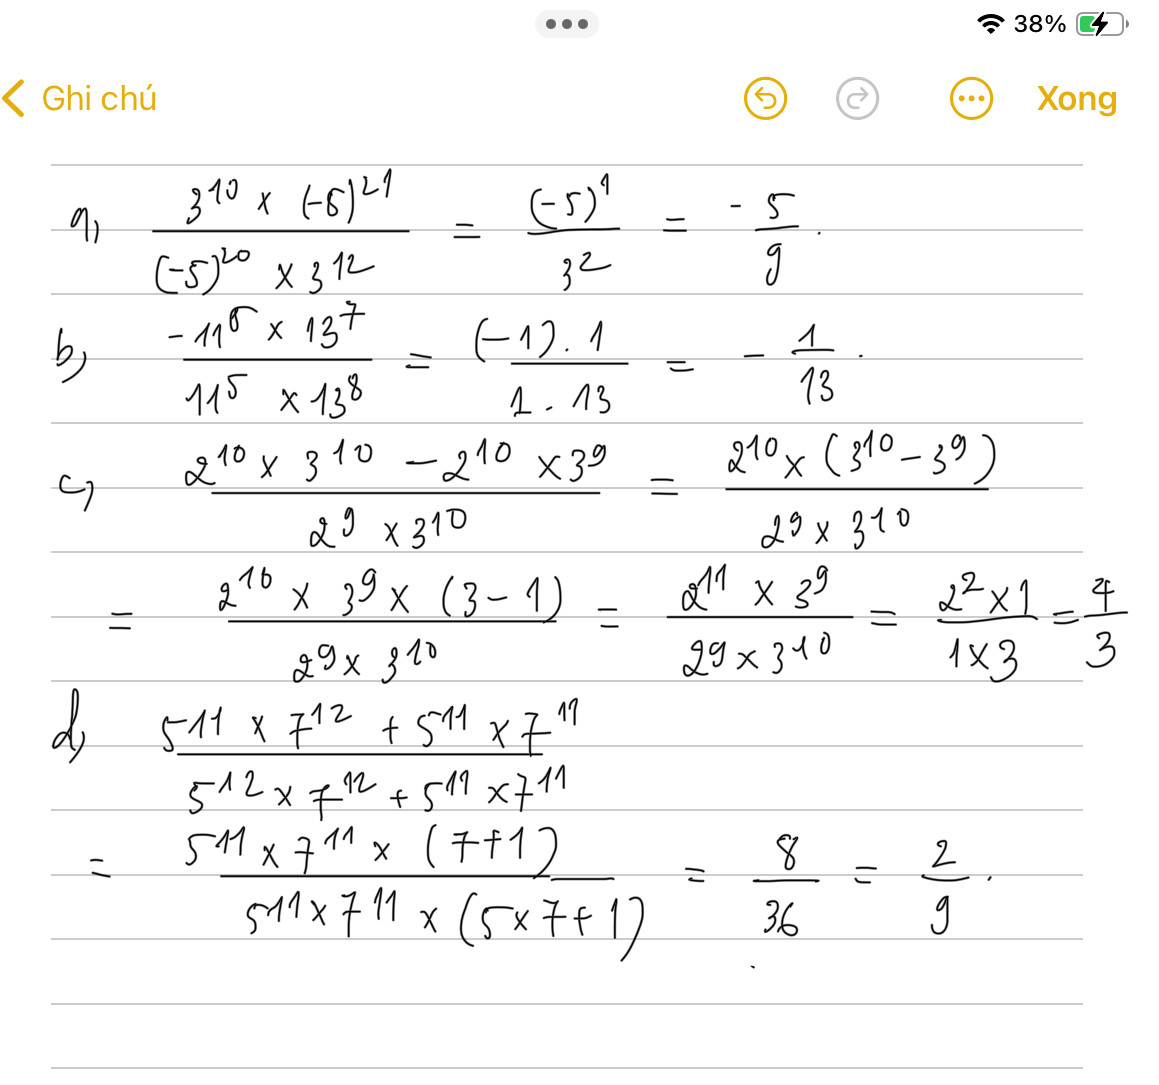 38%
Ghi chú Xong
a, 3^10 × (-5)^21 / (-5)^20 × 3^12 = (-5)^1 / 3^2 = -5/9.
b, -11^5 × 13^7 / 11^5 × 13^8 = (-1).1 / 1.13 = -1/13.
c, 2^10 × 3^10 - 2^10 × 3^9 / 2^9 × 3^10 = 2^10 × (3^10 - 3^9) / 2^9 × 3^10
= 2^10 × 3^9 × (3 - 1) / 2^9 × 3^10 = 2^11 × 3^9 / 2^9 × 3^10 = 2^2 × 1 / 1 × 3 = 4/3
d, 5^11 × 7^12 + 5^11 × 7^11 / 5^12 × 7^12 + 5^11 × 7^11
= 5^11 × 7^11 × (7 + 1) / 5^11 × 7^11 × (5 × 7 + 1) = 8/36 = 2/9.